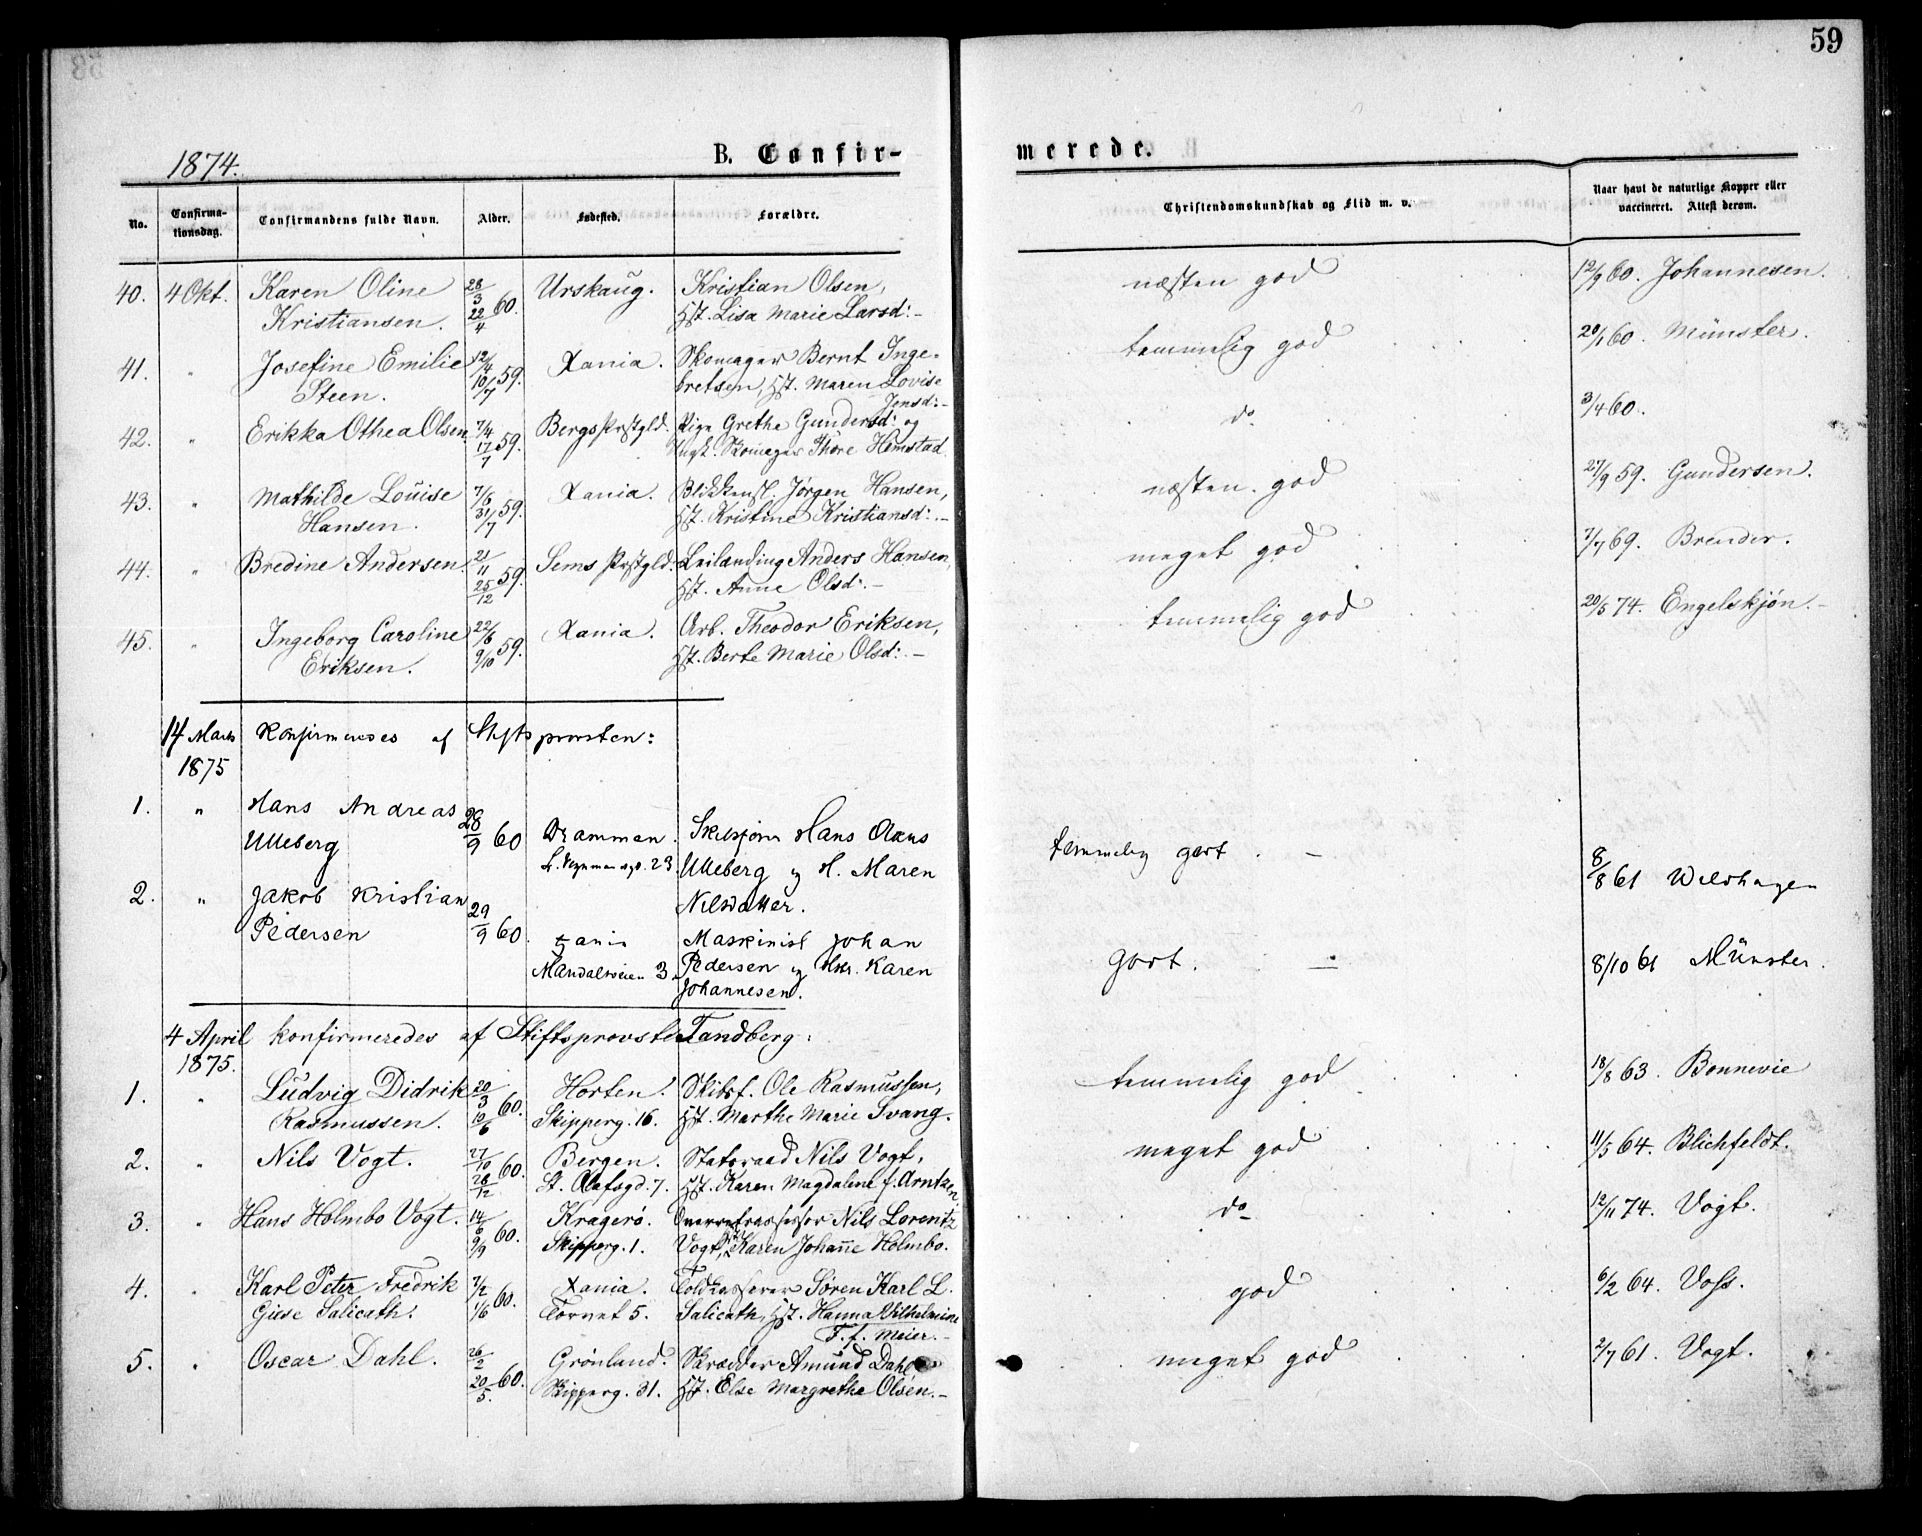 59
1874.
B. Confir-
merede.
No.
Confirma-
tionsdag.
Confirmandens fulde Navn.
Alder.
Fødested.
Forældre.
Christendomskundskab og Flid m. v.
Naar havt de naturlige Kopper eller
vaccineret. Attest derom.
40. 4 Okt. Karen Oline 28/3 60. Urskaug. Kristian Olsen, næsten god 12/9 60. Johannesen.
Kristiansen. 22/4 Hst. Lisa Marie Larsd:-
41. " Josefine Emilie 12/4 59. Xania. Skomager Bernt Inge- temmelig god 20/1 60. Münster.
Steen. 10/7 bretsen, Hst. Maren Lovise
Jensd:-
42. " Erikka Othea Olsen 7/4 59. Bergs Prstgld. Pige Grethe Gundersd: og do 3/4 60.
17/7 Skomager Thore Hemstad.
43. " Mathilde Louise 7/5 59. Xania. Blikkensl. Jørgen Hansen, næsten god 27/9 59. Gundersen.
Hansen. 31/7 Hst. Kristine Kristiansd:-
44. " Bredine Andersen. 21/11 59. Sems Prstgld. Leilænding Anders Hansen, meget god 7/7 69. Brender.
25/12 Hst. Anne Olsd:-
45. " Ingeborg Caroline 22/6 59. Xania. Arb. Theodor Eriksen, temmelig god 20/5 74. Engelskjøn.-
Eriksen. 9/10 Hst. Berte Marie Olsd:-
14 Marts Konfirmeredes af Stiftsprovsten:
1875
1. " Hans Andreas 28/9 60 Drammen. Skibsfører Hans Claus temmelig godt. - 8/8 61 Wildhagen
Ulleberg 23 Ulleberg og H. Maren
2. " Jakob Kristian 29/9 60. Xania Maskinist Johan godt. - 8/10 61 Münster.
Pedersen Mandalsveien 3. Pedersen og Hst. Karen
Johannesen.
4 April konfirmeredes af Stiftsprovst Tandberg:
1875.
1. " Ludvig Didrik 20/3 60. Horten! Skibsf. Ole Rasmussen, temmelig god 18/8 63. Bonnevie
Rasmussen. 10/6 Skipperg. 16. Hst. Marthe Marie Svang.
2. " Nils Vogt. 27/10 60. Bergen. Statsraad Nils Vogt, meget god 11/5 64. Blichfeldt.
28/12 St. Olafsgd. 7. Hst. Karen Magdalene f. Arntzen.
3. " Hans Holmbo Vogt. 14/6 60. Kragerø. Overretsassessor Nils Lorentz do 12/11 74. Vogt.
9/9 Skipperg. 1. Vogt, Hst. Karen Johanne Holmbo.
4. " Karl Peter Fredrik 7/2 60. Xania. Toldkasserer Søren Karl L. god 6/2 64. Voss.
Giese Salicath. 1/6 Torvet 5. Salicath, Hst. Hanna Vilhelmine
F. f. Meier.-
5. " Oscar Dahl. 26/2 60. Grønland. Skrædder Amund Dahl meget god 2/7 61. Vogt.
20/5 Skipperg. 31. Hst. Else Margrethe Olsen.-